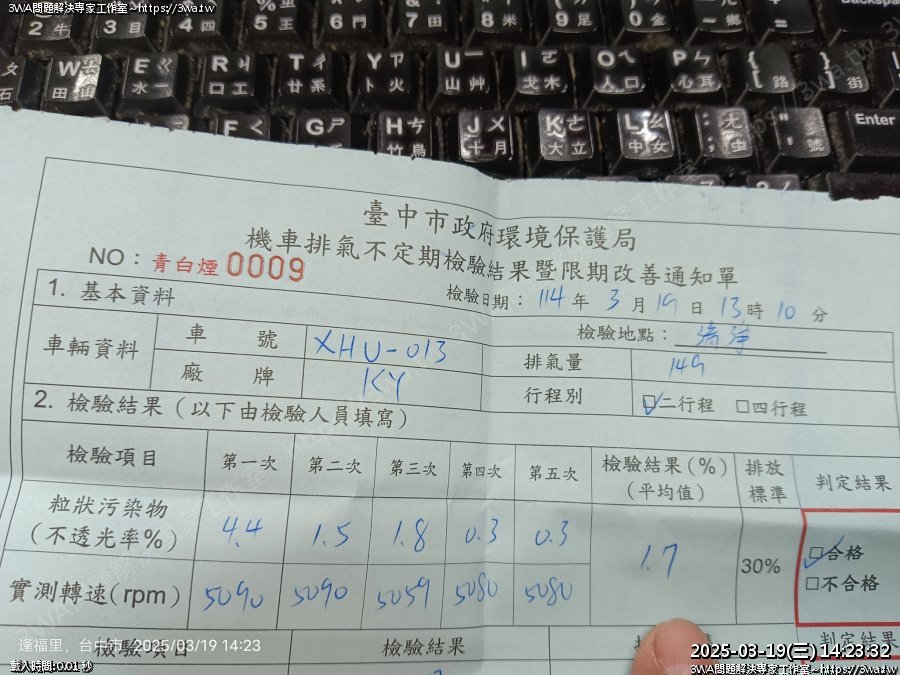 3WA問題解決專家工作室~https://3wa.tw
臺中市政府環境保護局
機車排氣不定期檢驗結果暨限期改善通知單
NO：青白煙 0009
檢驗日期：114 年 3 月 19 日 13 時 10 分
1. 基本資料
檢驗地點：
車輛資料
車號 XHU-013
排氣量 149
廠牌 KY
行程別 ☑二行程 □四行程
2. 檢驗結果（以下由檢驗人員填寫）
檢驗項目 第一次 第二次 第三次 第四次 第五次 檢驗結果(%)(平均值) 排放標準 判定結果
粒狀污染物(不透光率%) 4.4 1.5 1.8 0.3 0.3 1.7 30% ☑合格
□不合格
實測轉速(rpm) 5090 5090 5059 5080 5080
檢驗項目 檢驗結果 判定結果
逢福里，台中市 2025/03/19 14:23
載入時間:0.01 秒
2025-03-19(三) 14:23:32
3WA問題解決專家工作室~https://3wa.tw
W 田 E 水 一 R 口 工 T 廿 糸 Y 卜 火 U 山 艸 I 戈 木 O 人 口 P 心 耳 { [ 路 } ] 街
F G H 竹 鳥 J 十 月 K 大 立 L 中 女 Enter
Backspace